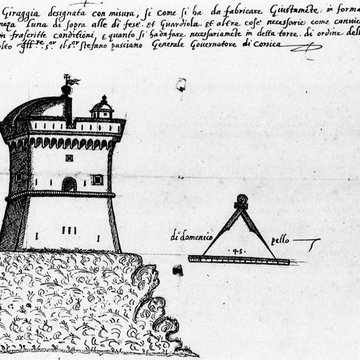 Giraggia designata con misura, si come si ha da fabricare Giustamẽte: in forma
Luna di sopra alle di fese. Et Guardiola. Et altre cose necessarie come
in frascritte conditioni, e quanto si ha da fare necessariamẽte in detta torre. di ordine dell
stefano passiano Generale Governatore di corsica
di domenico
pello